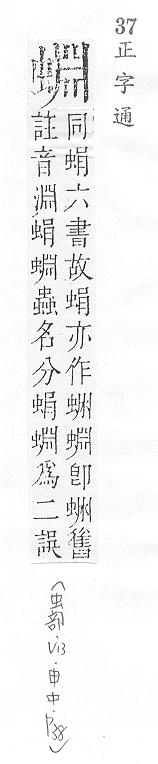 37
正字通
蜵
同蜎六書故蜎亦作蜵卽舊
註音淵蜎蜵蟲名分蜎蜵爲二誤
(虫部·V13·申中·P38)